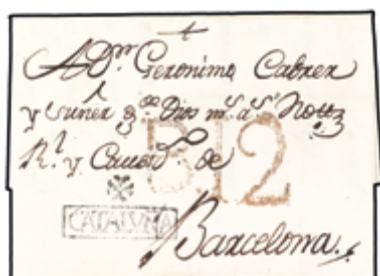 A Dn. Geronimo Cabrer
y Suñer gde. Dios ms. as. Nottº
Rl. y Causds. de
B12
CATALUÑA
Barcelona.